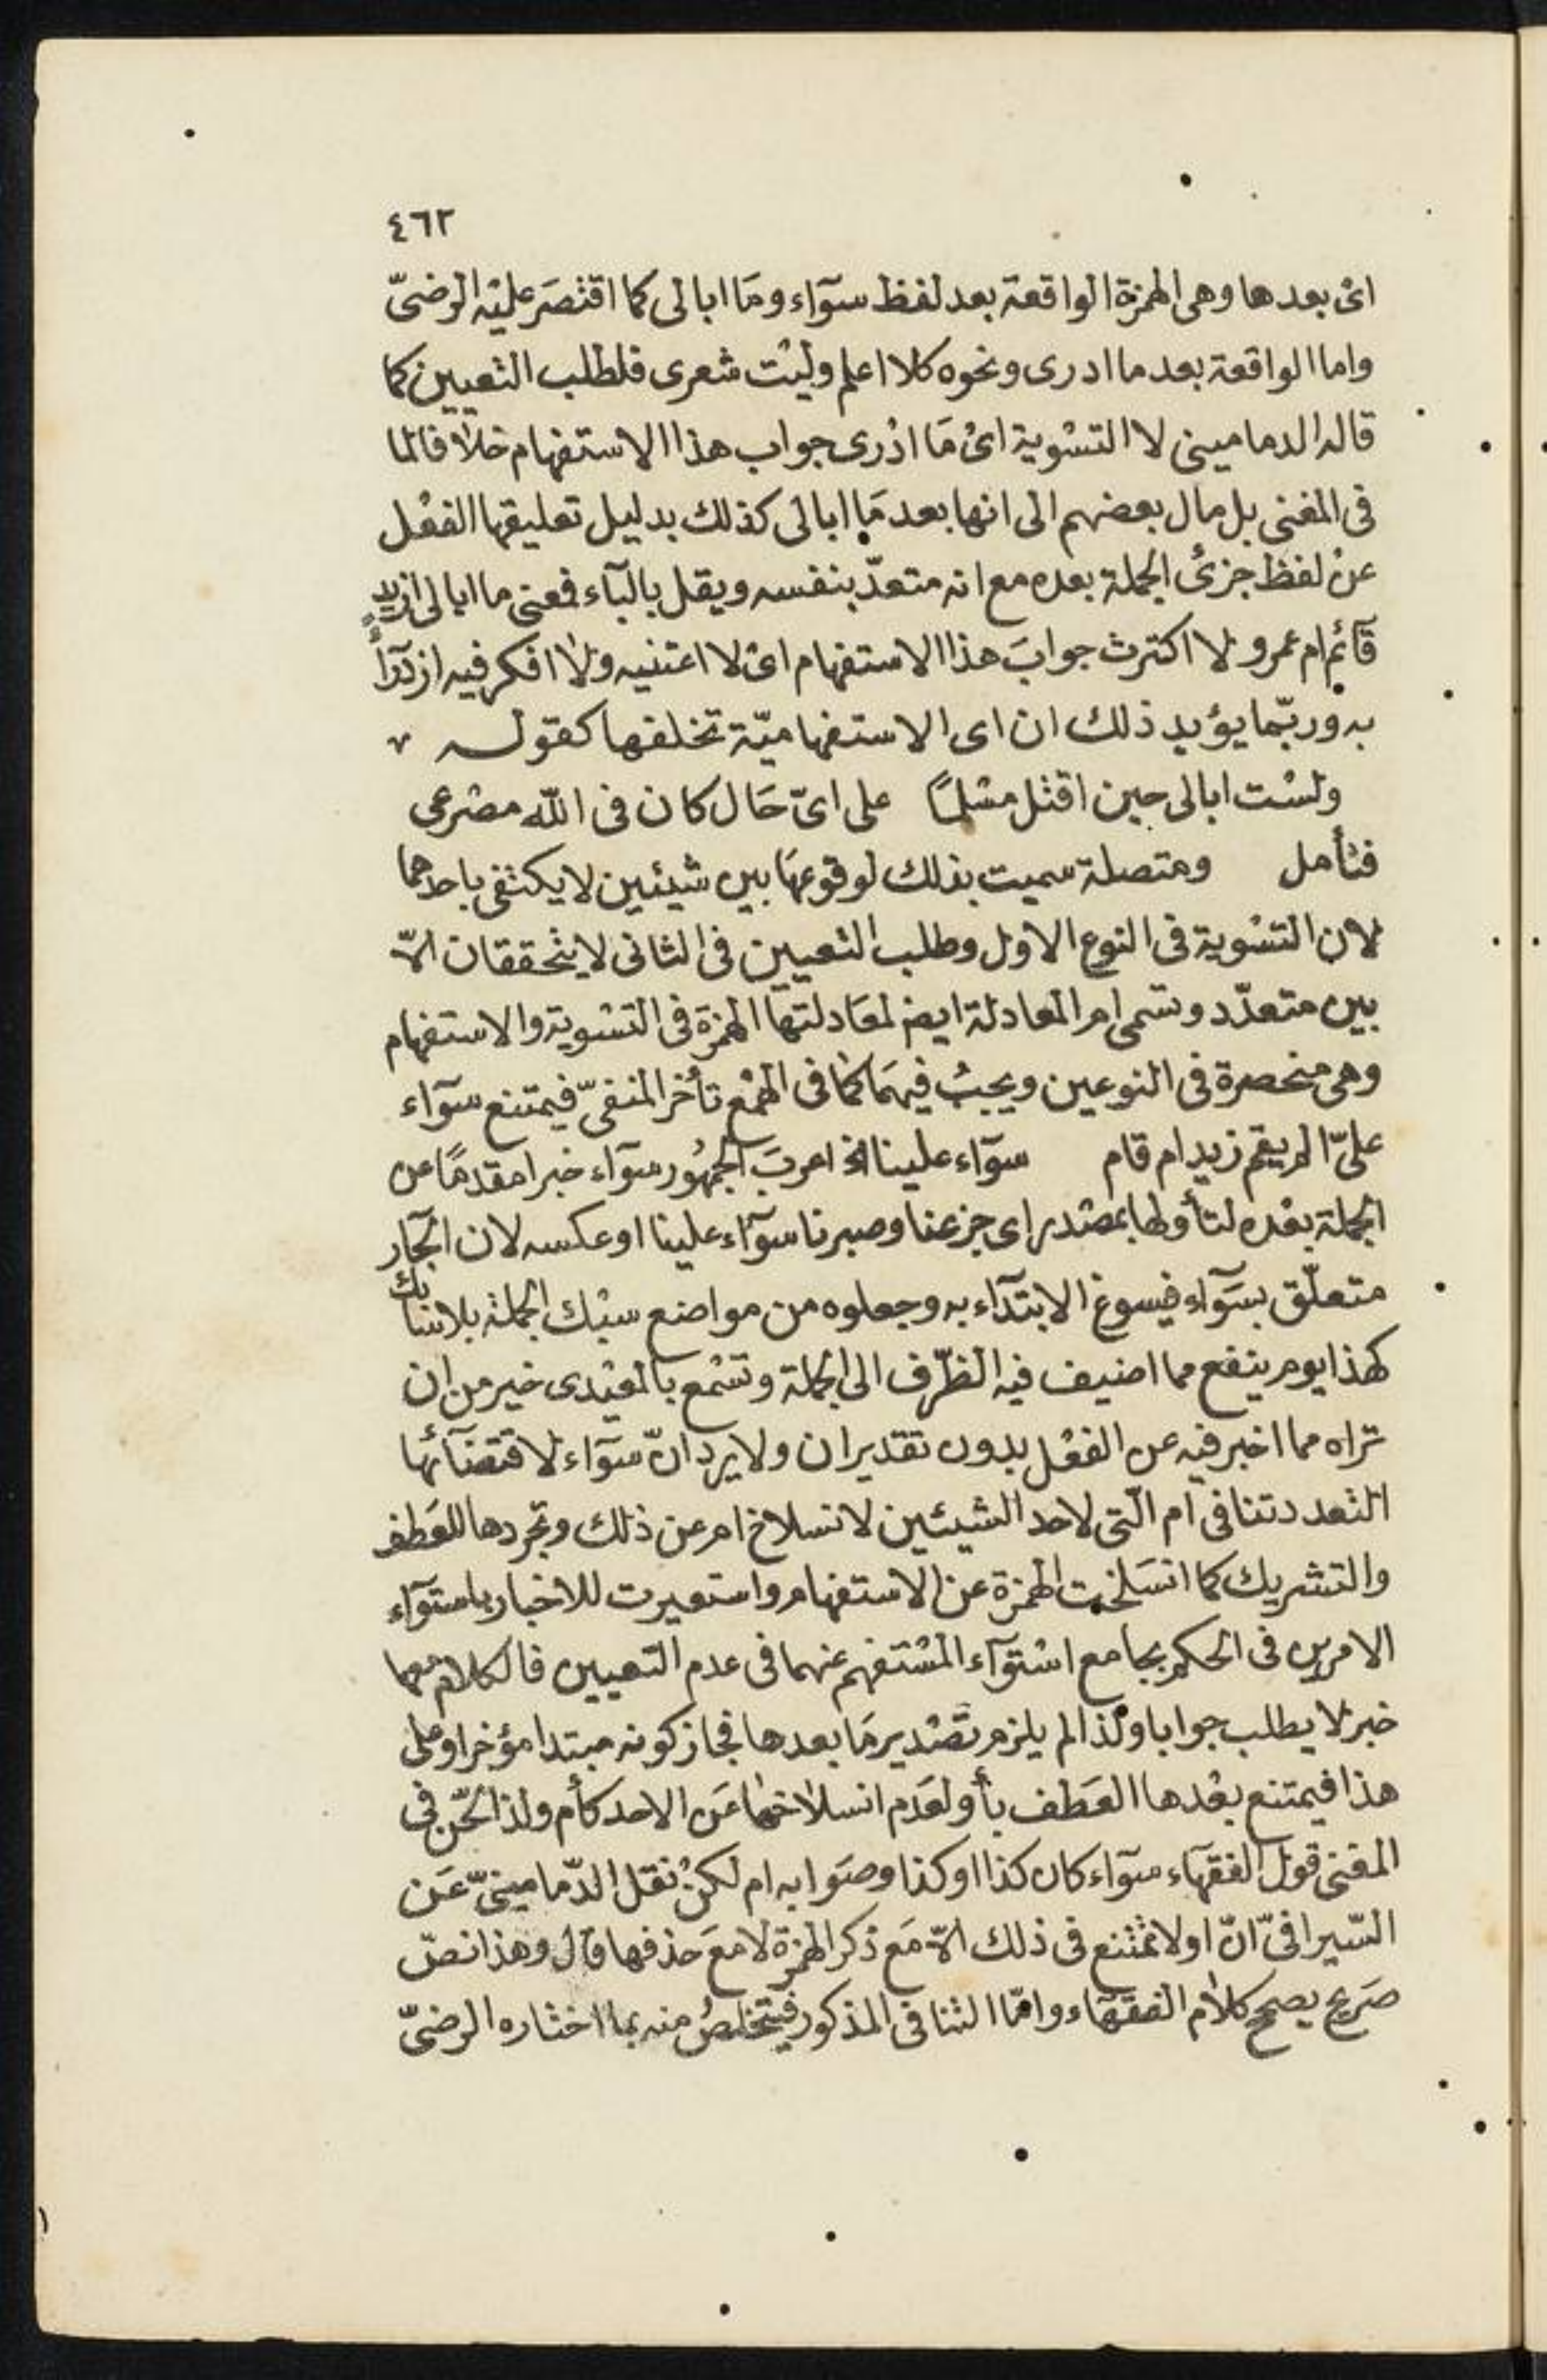 ٤٦٢
اىْ بعدها وهى الهمزة الواقعة بعد لفظ سوآء ومَا ابالى كما اقتصَر عليْه الرضىّ
واما الواقعة بعد ما ادرى ونحوه كلا اعلم وليْت شعرى فلطلب التعيين كما
قاله الدمامينى لا التسْوية اىْ مَا ادْرى جواب هذا الاستفهام خلافا لما
فى المغنى بل مال بعضهم الى انها بعد مَا ابالى كذلك بدليل تعليقها الفعْل
عنْ لفظ جزئى الجملة بعده مع انه متعدّ بنفسه ويقل بالبآء فمعنى ما ابالى ازيدٌ
قآئم ام عمرو لا اكترث جوابَ هذا الاستفهام اىْ لا اعتنيه ولا افكر فيه ازدرآءً
به وربّما يؤيد ذلك ان اى الاستفهاميّة تخلفها كقوله
ولسْت ابالى حين اقتل مسْلمًا على اىّ حَال كان فى اللّه مصْرعى
فتأمل ومتصلة سميت بذلك لوقوعهَا بين شيئين لا يكتفى باحدهما
لان التسْوية فى النوع الاول وطلب التعيين فى الثانى لا يتحققان الاّ
بين متعدّد وتسمى ام المعادلة ايضا لمعَادلتها الهمزة فى التسْوية والاستفهام
وهى منحصرة فى النوعين ويجبُ فيهمَا كما فى الهمْع تأخر المنفىّ فيمتنع سوآء
علىّ الم يقم زيد ام قام سوآء علينا الخ اعربَ الجمهُور سوآء خبرا مقدمًا عن
الجملة بعْده لتأولها بمصْدر اى جزعنا وصبرنا سوآء علينا او عكسه لان الجآر
متعلّق بسَوآء فيسوغ الابتدآء به وجعلوه من مواضع سبْك الجملة بلا سَابك
كهذا يوم ينفع مما اضيف فيه الظّرف الى الجملة وتسْمع بالمعيْدى خير من ان
تراه مما اخبر فيْه عن الفعْل بدون تقدير ان ولا يرد انّ سوآء لاقتضآئها
التعدد تنافى ام الّتى لاحد الشيئين لانسلاخ ام عن ذلك وتجردها للعَطف
والتشريك كما انسَلخت الهمزة عن الاستفهام واستعيرت للاخبار باستوآء
الامرين فى الحكم بجامع اسْتوآء المسْتفهم عنهما فى عدم التعيين فالكلام معهما
خبر لا يطلب جوابا ولذا لم يلزم تصْدير مَا بعدها فجاز كونه مبتدا مؤخرا وعلى
هذا فيمتنع بعْدها العَطف بأو لعَدم انسلاخهَا عَن الاحد كأم ولذا لحّن فى
المغنى قول الفقهآء سوآء كان كذا او كذا وصَوابه ام لكنْ نقل الدّمامينىّ عَن
السّيرافىّ انّ او لا تمتنع فى ذلك الاّ مَع ذكر الهمزة لا معَ حذفها قال وهذا نصّ
صَريح يصحح كلام الفقهَاء وامّا التنافى المذكور فيتخلصُ منه بما اختاره الرضىّ